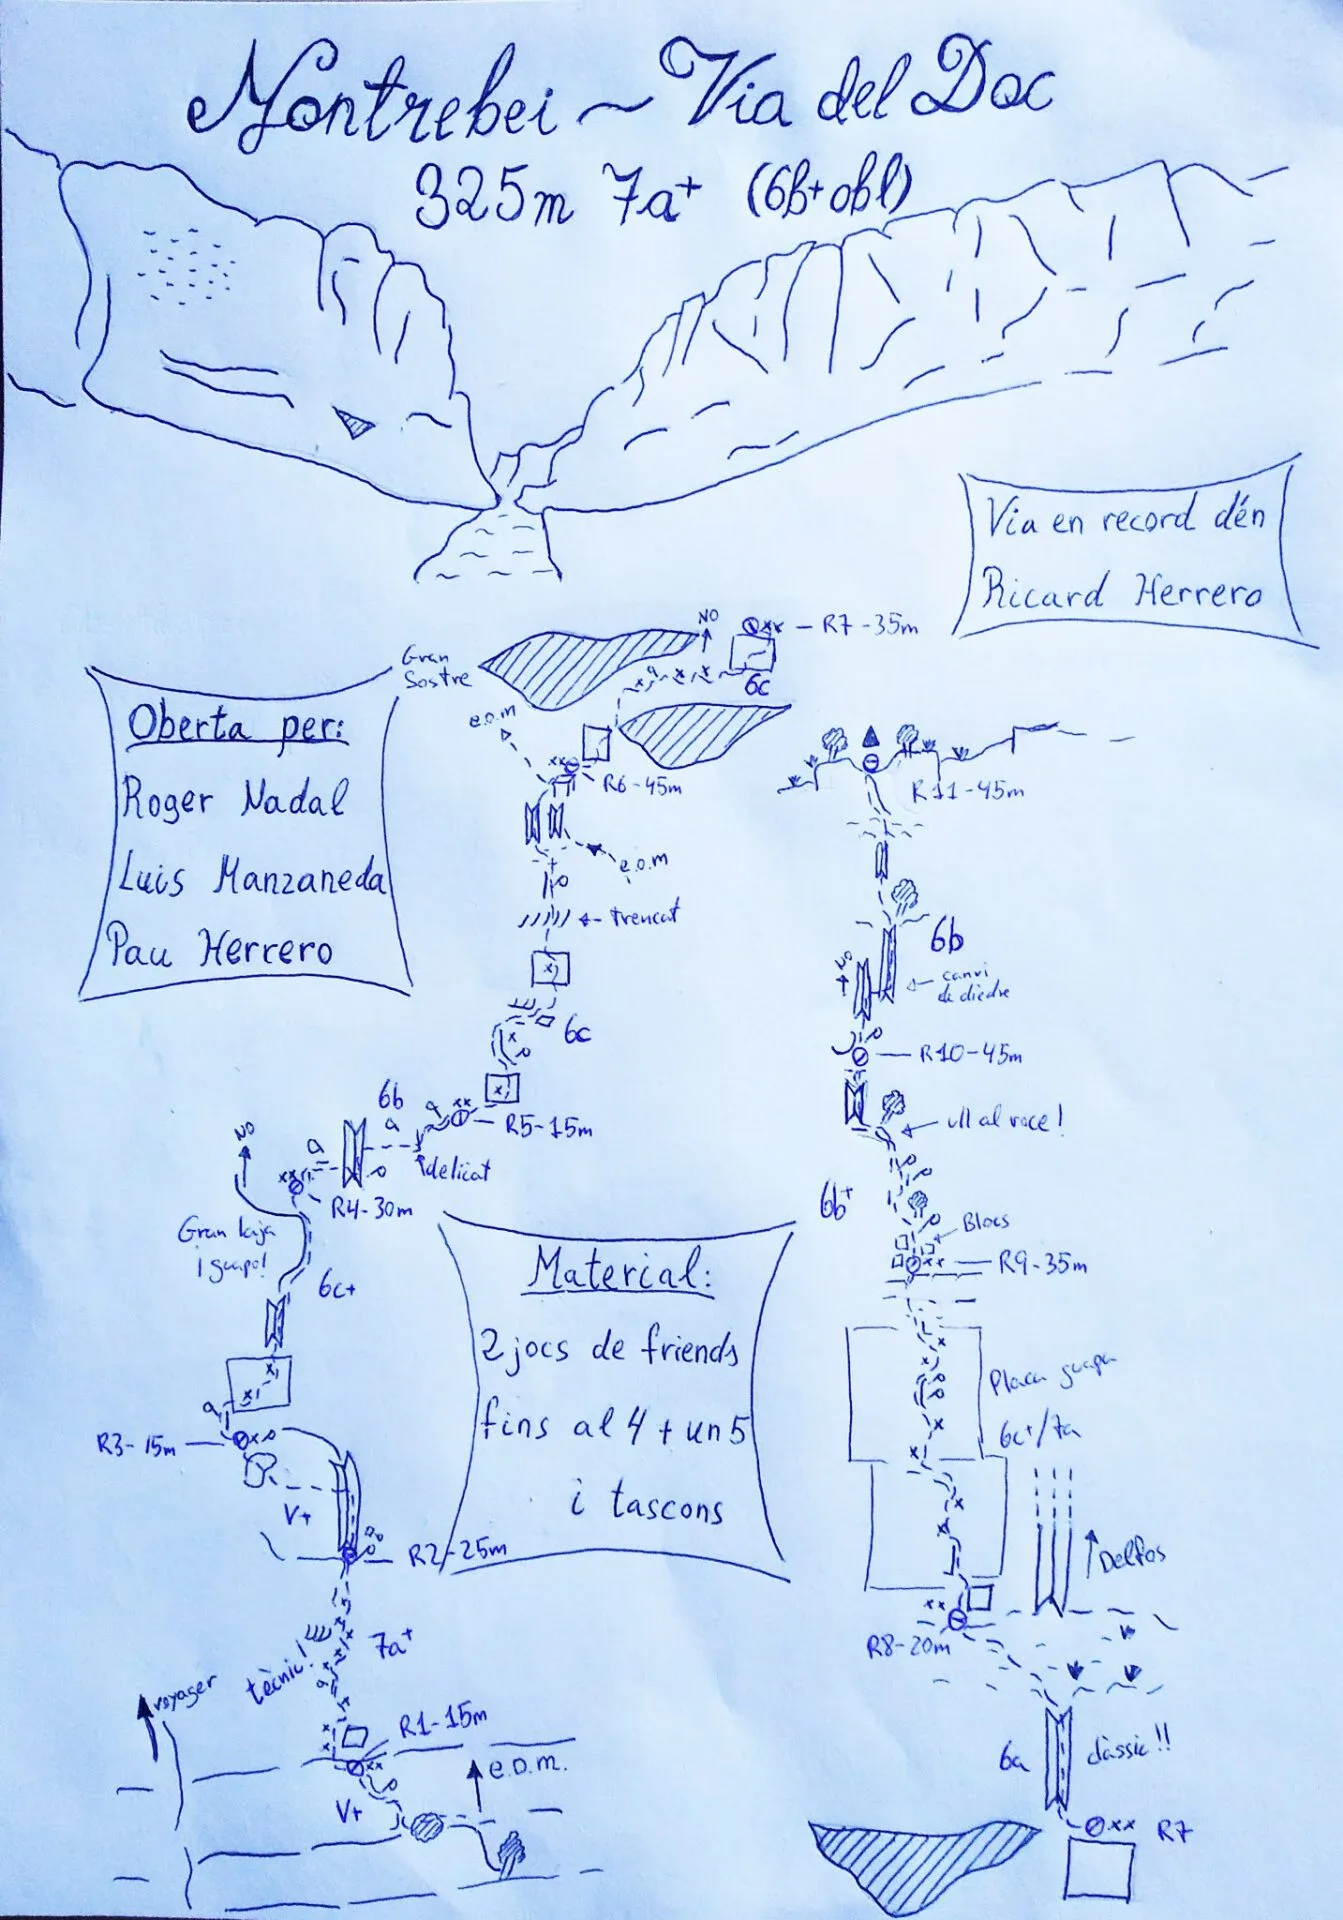 Montrebei ~ Via del Doc
325m 7a+ (6b+ obl)
Via en record d'én
Ricard Herrero
Oberta per:
Roger Nadal
Luis Manzaneda
Pau Herrero
Gran
Sostre
NO
R7-35m
6c
e.o.m
R6-45m
e.o.m
trencat
6c
6b
a
a
a
R5-15m
delicat
NO
R4-30m
Gran laja
i guapo!
6c+
a
R3-15m
V+
R2-25m
7a+
tècnic!
a
voyager
R1-15m
e.o.m.
V+
Material:
2 jocs de friends
fins al 4 + un 5
i tascons
R11-45m
6b
NO
canvi
de diedre
R10-45m
ull al roce!
6b+
Blocs
R9-35m
Placa guapa
6c+/7a
Delfos
R8-20m
6a
clàssic!!
R7